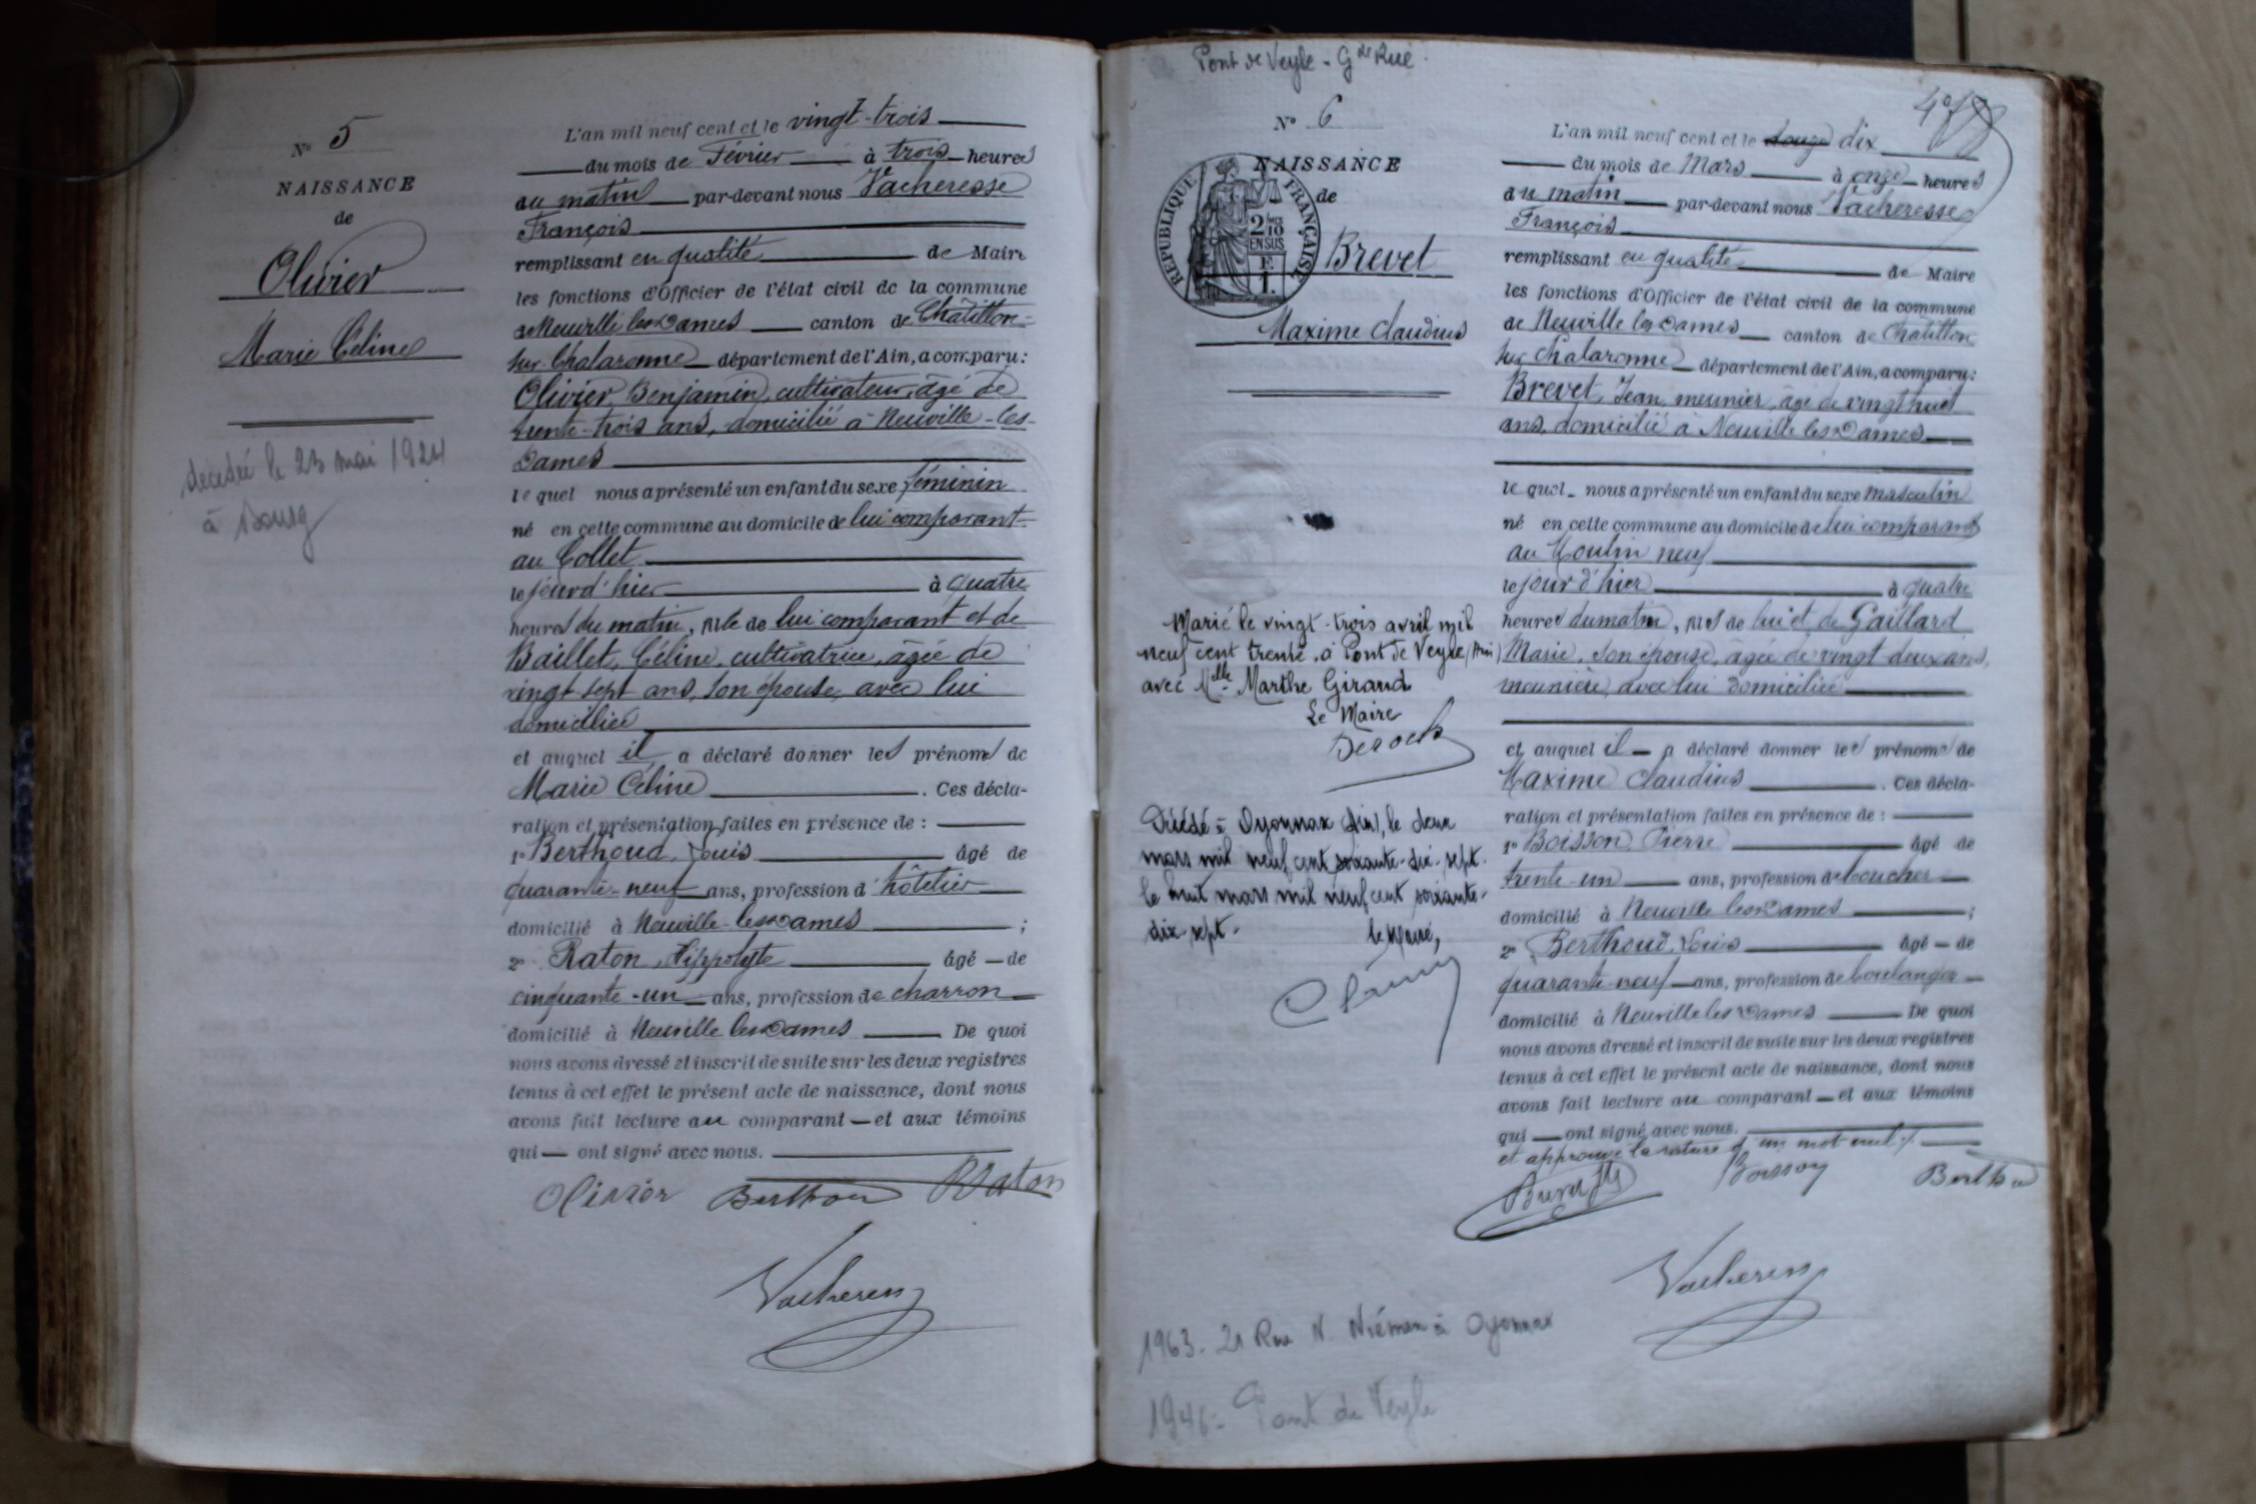 Nº 5
NAISSANCE
de
Olivier
Marie Céline
décédé le 23 mai 1924
à Bourg
L'an mil neuf cent et le vingt-trois
du mois de Février à trois heures
au matin par-devant nous Vacheresse
François
remplissant en qualité de Maire
les fonctions d'Officier de l'état civil de la commune
de Neuville les Dames canton de Châtillon-
sur-Chalaronne département de l'Ain, a comparu:
Olivier Benjamin, cultivateur, âgé de
trente-trois ans, domicilié à Neuville-les-
Dames
lequel nous a présenté un enfant du sexe féminin
né en cette commune au domicile de lui comparant
au Collet
le jour d'hier à quatre
heures du matin, née de lui comparant et de
Baillet, Céline, cultivatrice, âgée de
vingt sept ans, son épouse, avec lui
domiciliée
et auquel il a déclaré donner les prénoms de
Marie Céline. Ces décla-
ration et présentation faites en présence de :
1º Berthoud, Louis âgé de
quarante-neuf ans, profession d'hôtelier
domicilié à Neuville-les-Dames ;
2º Raton, Hippolyte âgé de
cinquante-un ans, profession de charron
domicilié à Neuville les Dames De quoi
nous avons dressé et inscrit de suite sur les deux registres
tenus à cet effet le présent acte de naissance, dont nous
avons fait lecture au comparant et aux témoins
qui ont signé avec nous.
Olivier Berthou Raton
Vacheress
Pont de Veyle - Gde Rue
Nº 6
NAISSANCE
de
RÉPUBLIQUE FRANÇAISE
2/10
EN SUS
F.
1.
Brevet
Maxime Claudius
Marié le vingt-trois avril mil
neuf cent trente à Pont de Veyle (Ain)
avec Melle Marthe Giraud
Le Maire
Décédé à Oyonnax (Ain), le deux
mars mil neuf cent soixante-dix-sept.
le huit mars mil neuf cent soixante-
dix-sept. le Maire,
1963. 21 Rue N. Niémen à Oyonnax
1946 - Pont de Veyle
L'an mil neuf cent et le douze dix
du mois de Mars à onze heures
du matin par-devant nous Vacheresse
François
remplissant en qualité de Maire
les fonctions d'Officier de l'état civil de la commune
de Neuville les Dames canton de Châtillon
sur Chalaronne département de l'Ain, a comparu:
Brevet, Jean, meunier, âgé de vingt huit
ans, domicilié à Neuville les Dames
lequel nous a présenté un enfant du sexe masculin
né en cette commune au domicile de lui comparant
au Moulin neuf
le jour d'hier à quatre
heures du matin, né de lui et de Gaillard
Marie, son épouse, âgée de vingt deux ans,
meunière, avec lui domiciliée
et auquel il a déclaré donner les prénoms de
Maxime Claudius. Ces décla-
ration et présentation faites en présence de :
1º Boisson Pierre âgé de
trente-un ans, profession de boucher
domicilié à Neuville les Dames ;
2º Berthoud, Louis âgé de
quarante-neuf ans, profession de boulanger
domicilié à Neuville les Dames De quoi
nous avons dressé et inscrit de suite sur les deux registres
tenus à cet effet le présent acte de naissance, dont nous
avons fait lecture au comparant et aux témoins
qui ont signé avec nous.
et approuvé la rature d'un mot nul.
Boisson Berthou
Vacheress